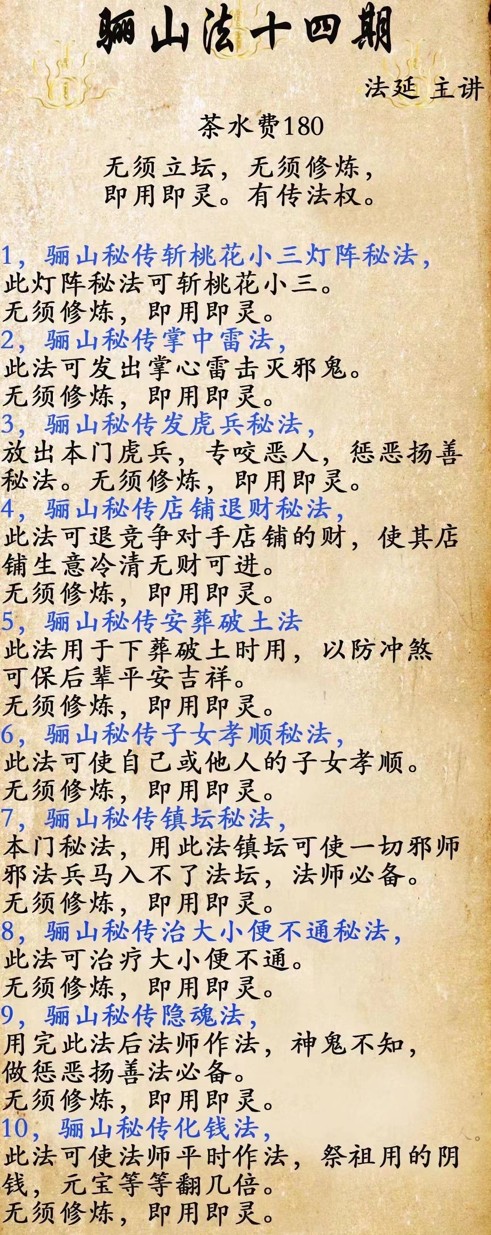 骊山法十四期
法延 主讲
茶水费180
无须立坛，无须修炼，
即用即灵。有传法权。
1，骊山秘传斩桃花小三灯阵秘法，
此灯阵秘法可斩桃花小三。
无须修炼，即用即灵。
2，骊山秘传掌中雷法，
此法可发出掌心雷击灭邪鬼。
无须修炼，即用即灵。
3，骊山秘传发虎兵秘法，
放出本门虎兵，专咬恶人，惩恶扬善
秘法。无须修炼，即用即灵。
4，骊山秘传店铺退财秘法，
此法可退竞争对手店铺的财，使其店
铺生意冷清无财可进。
无须修炼，即用即灵。
5，骊山秘传安葬破土法
此法用于下葬破土时用，以防冲煞
可保后辈平安吉祥。
无须修炼，即用即灵。
6，骊山秘传子女孝顺秘法，
此法可使自己或他人的子女孝顺。
无须修炼，即用即灵。
7，骊山秘传镇坛秘法，
本门秘法，用此法镇坛可使一切邪师
邪法兵马入不了法坛，法师必备。
无须修炼，即用即灵。
8，骊山秘传治大小便不通秘法，
此法可治疗大小便不通。
无须修炼，即用即灵。
9，骊山秘传隐魂法，
用完此法后法师作法，神鬼不知，
做惩恶扬善法必备。
无须修炼，即用即灵。
10，骊山秘传化钱法，
此法可使法师平时作法，祭祖用的阴
钱，元宝等等翻几倍。
无须修炼，即用即灵。